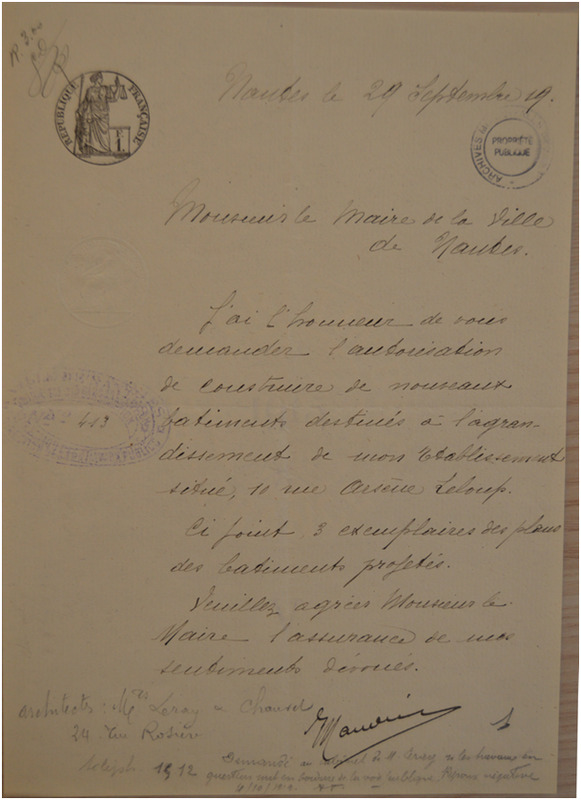 R. 3.
RÉPUBLIQUE FRANÇAISE
Nantes le 29 Septembre 19.
ARCHIVES
PROPRIÉTÉ
PUBLIQUE
Monsieur le Maire de la Ville
de Nantes.
J'ai l'honneur de vous
demander l'autorisation
de construire de nouveaux
batiments destinés à l'agran-
dissement de mon Etablissement
situé, 10 rue Arsène Leloup.
413
Ci joint, 3 exemplaires des plans
des batiments projetés.
Veuillez agréer Monsieur le
Maire l'assurance de mes
sentiments dévoués.
architectes : Leray & Chauvet
24 rue Rosière
teleph. 15,12
Demandé au cabinet de M. Leray si les travaux en
question sont en bordure de la voie publique. Réponse négative
4/10/19